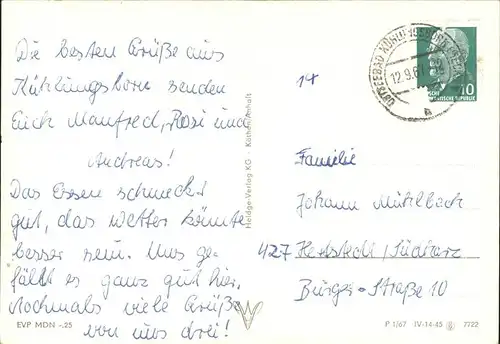 Die besten Grüße aus
Kühlungsborn senden
Euch Manfred, Rosi und
Andreas!
Das Essen schmeckt
gut, das Wetter könnte
besser sein. Uns ge-
fällt es ganz gut hier.
Nochmals viele Grüße
von uns drei!
EVP MDN -.25
Heldge-Verlag KG · Köthen/Anhalt
OSTSEEBAD KÜHLUNGSBORN
12.9.6
10
14
Familie
Johann Mühlbach
427 Hettstedt/Südharz
Bürger-Straße 10
P 1/67 IV-14-45 7722